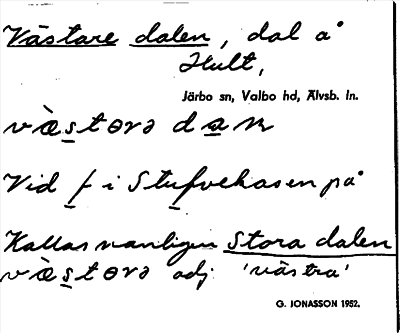 Västare dalen, dal å
Hult,
Järbo sn, Valbo hd, Älvsb. ln.
västɵrə
Vid f i Stufvekasen på
Kallas vanligen Stora dalen
västɵrə adj 'västra'
G. JONASSON 1952.